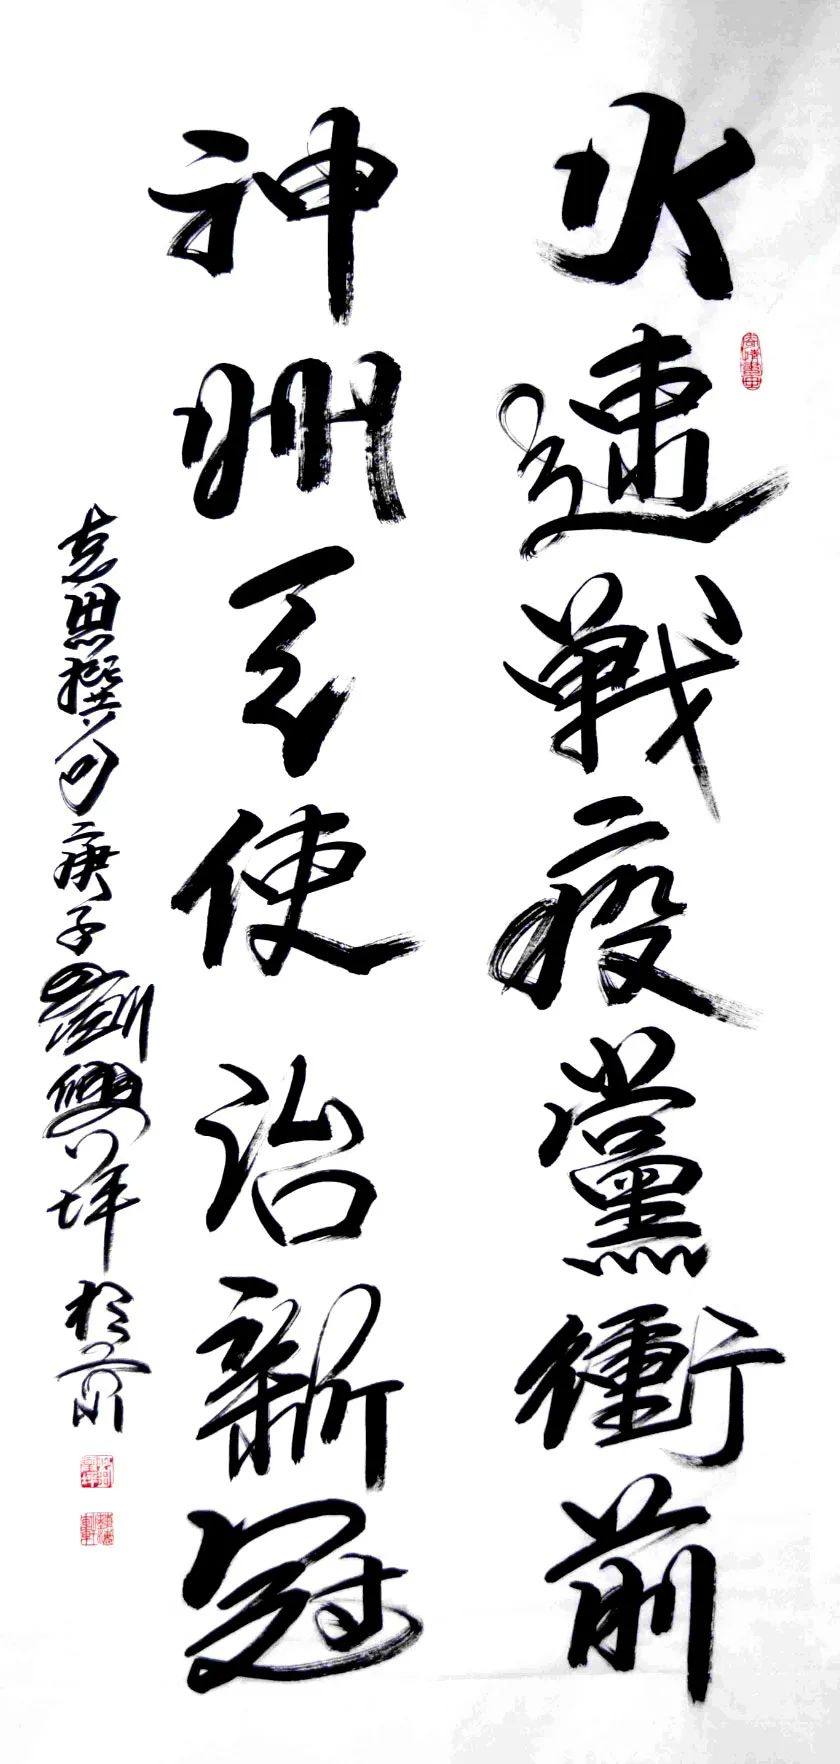 火速戰疫黨衝前
神州天使治新冠
克思撰句庚子劉興於